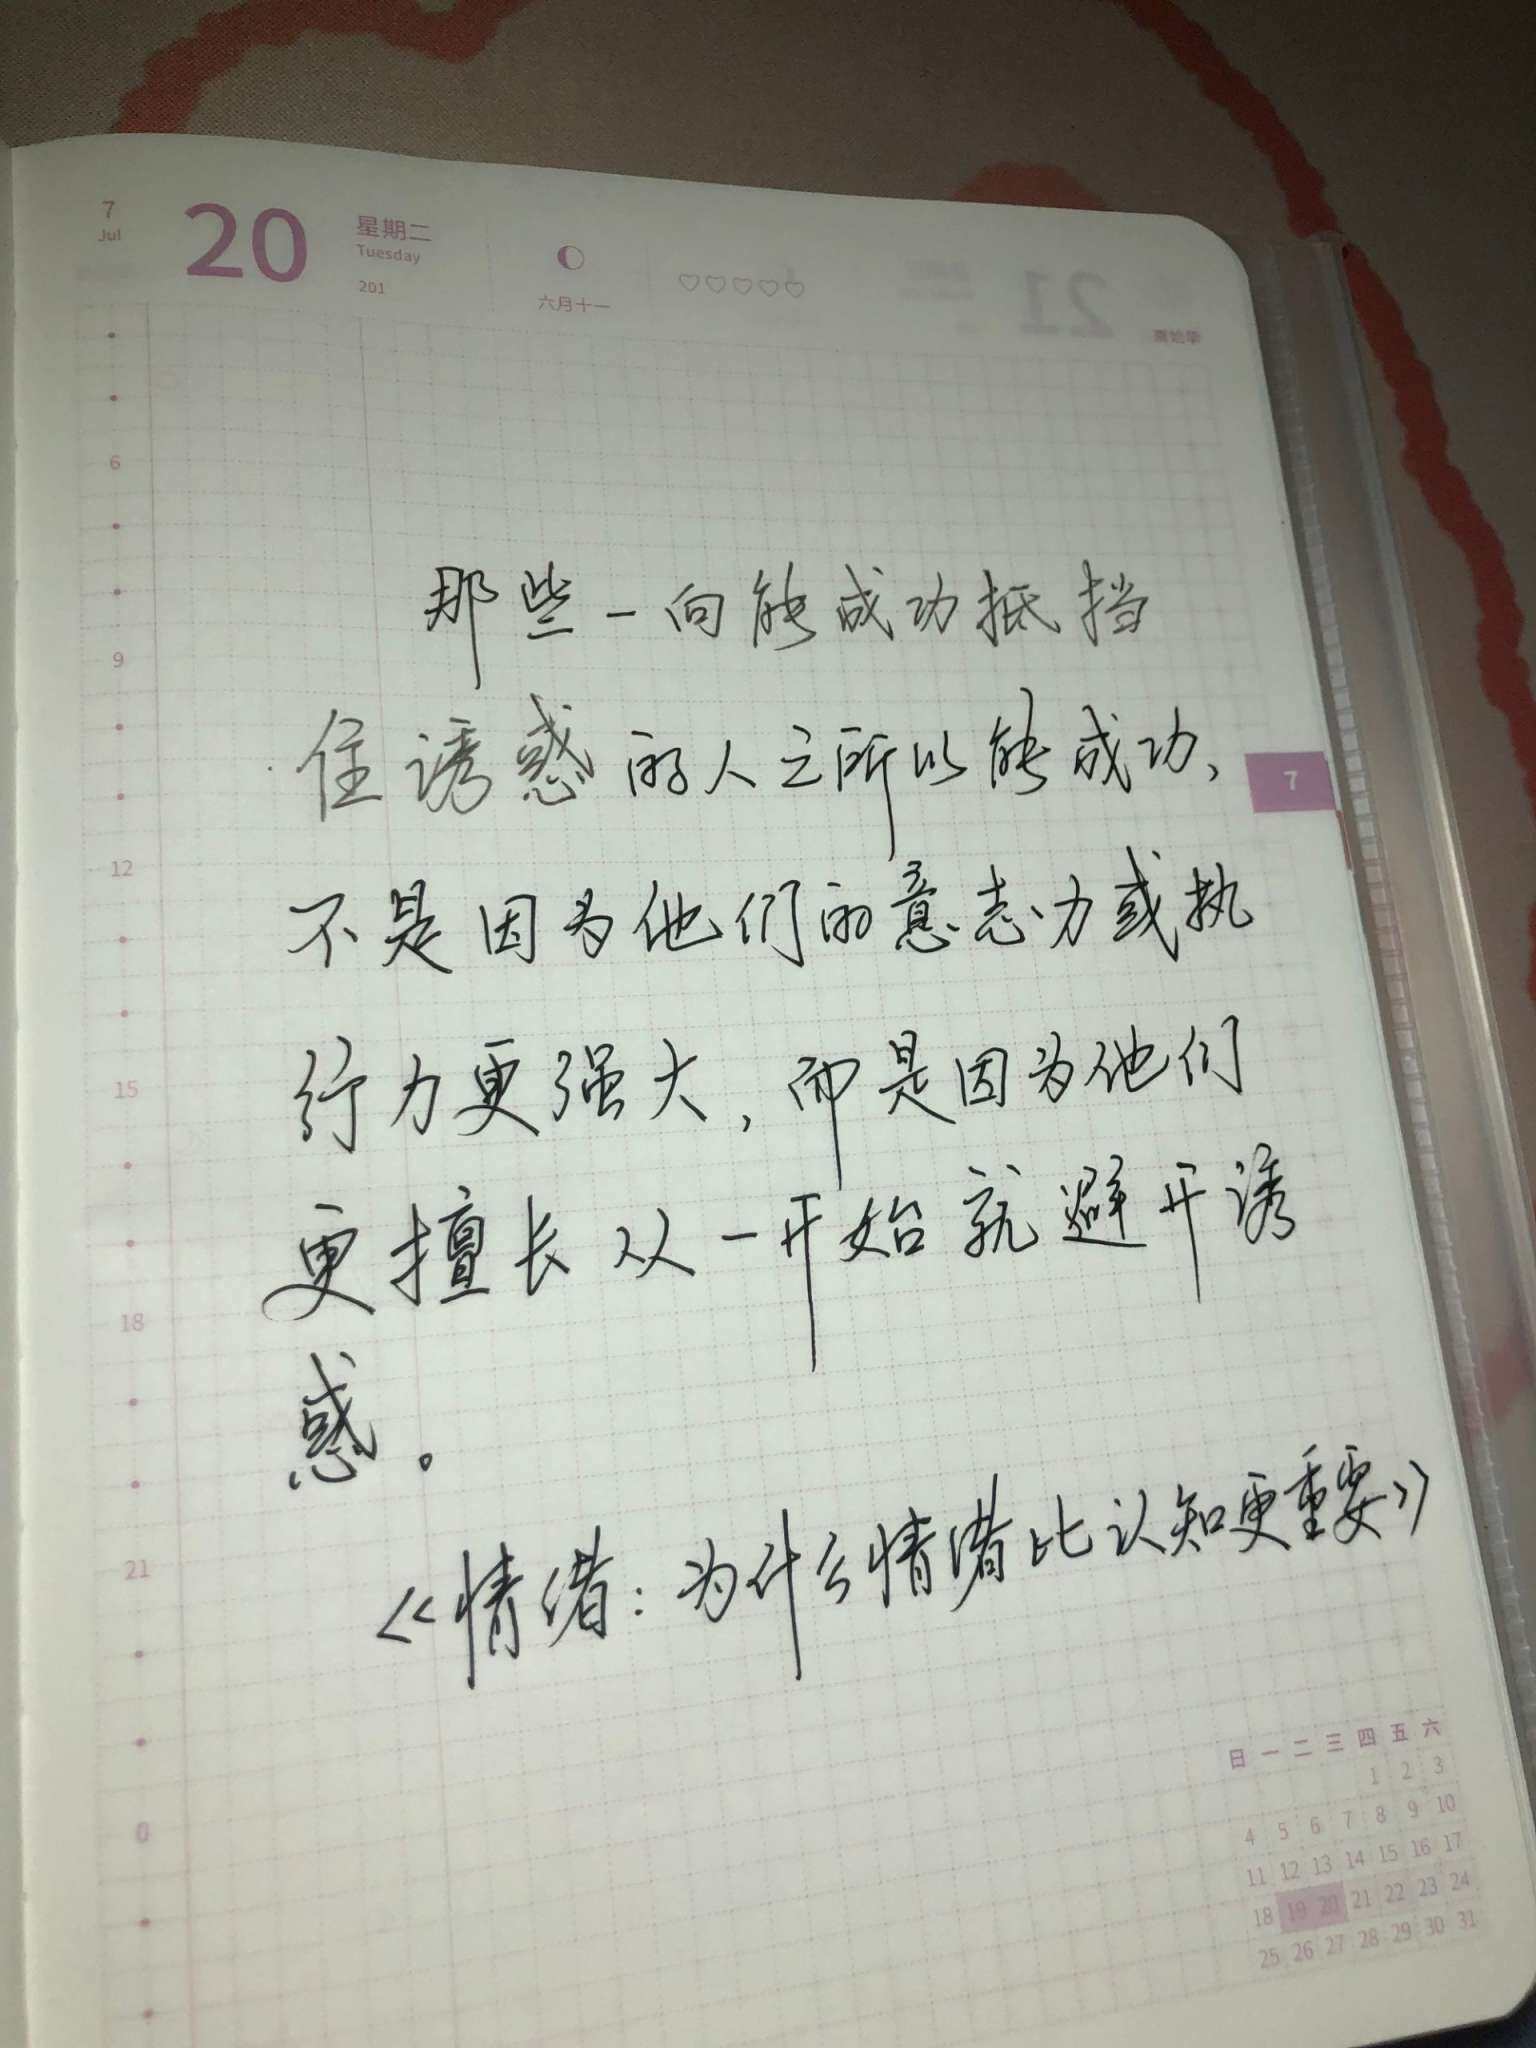 7
Jul
20
星期二
Tuesday
201
六月十一
21
7
6
9
12
15
18
21
0
那些一向能成功抵挡
住诱惑的人之所以能成功,
不是因为他们的意志力或执
行力更强大,而是因为他们
更擅长从一开始就避开诱
惑。
《情绪:为什么情绪比认知更重要》
日 一 二 三 四 五 六
1 2 3
4 5 6 7 8 9 10
11 12 13 14 15 16 17
18 19 20 21 22 23 24
25 26 27 28 29 30 31